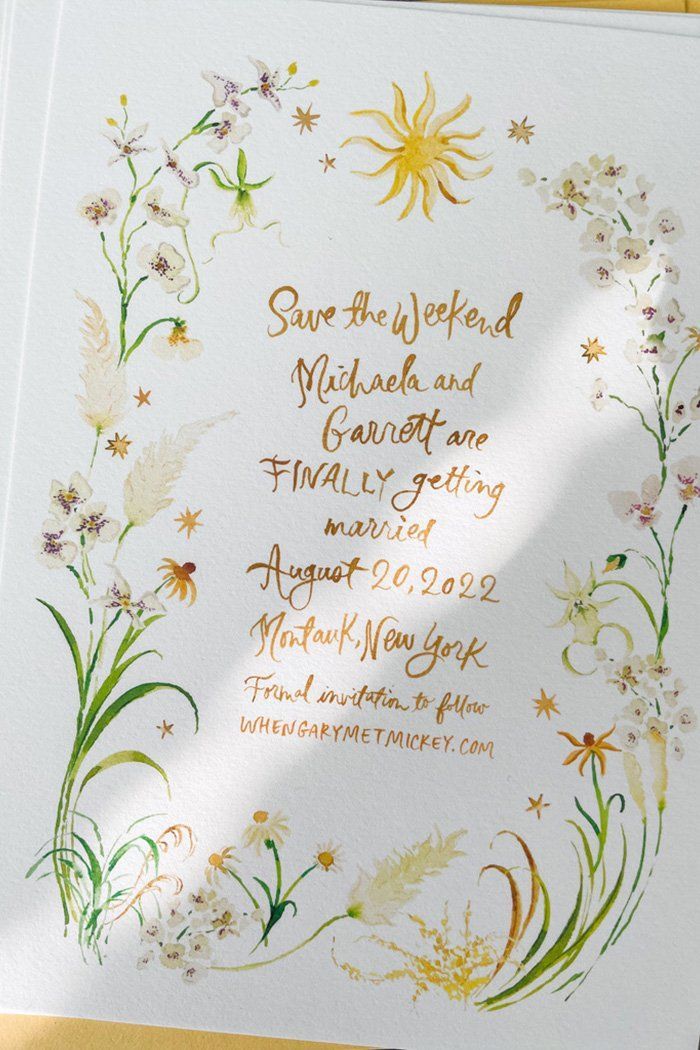 Save the Weekend
Michaela and
Garrett are
FINALLY getting
married
August 20, 2022
Montauk, New York
Formal invitation to follow
WHENGARYMETMICKEY.COM